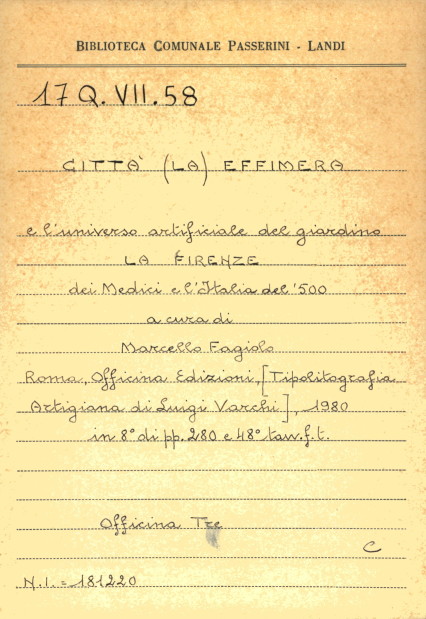 BIBLIOTECA COMUNALE PASSERINI - LANDI
17 Q. VII. 58
CITTÀ (LA) EFFIMERA
e l'universo artificiale del giardino
LA FIRENZE
dei Medici e l'Italia del '500
a cura di
Marcello Fagiolo
Roma, Officina Edizioni, [Tipolitografia
Artigiana di Luigi Varchi], 1980
in 8° di pp. 280 e 48° tav. f. t.
Officina Tre
C
N. I. = 181220